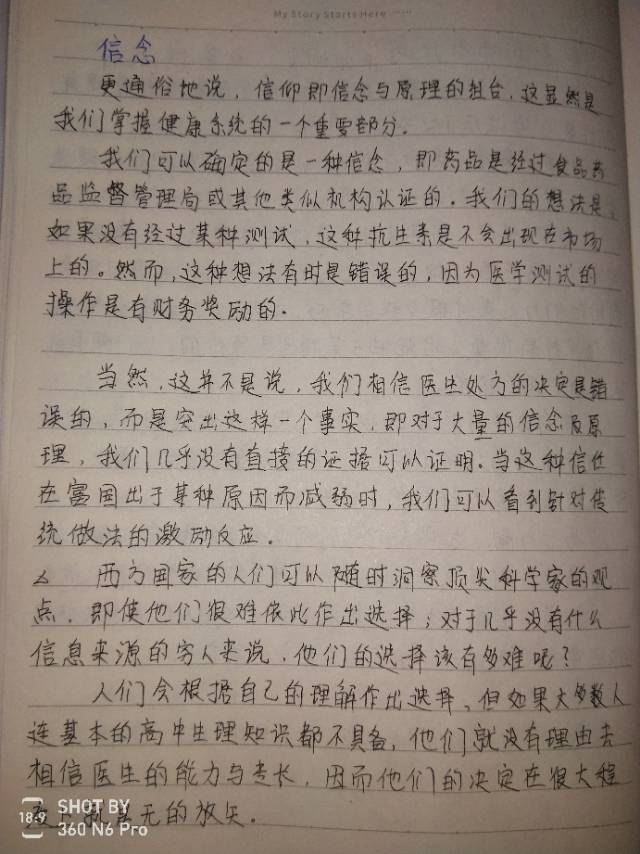 My Story Starts Here ······
信念
更通俗地说，信仰即信念与原理的组合，这显然是
我们掌握健康系统的一个重要部分。
我们可以确定的是一种信念，即药品是经过食品药
品监督管理局或其他类似机构认证的。我们的想法是，
如果没有经过某种测试，这种抗生素是不会出现在市场
上的。然而，这种想法有时是错误的，因为医学测试的
操作是有财务奖励的。
当然，这并不是说，我们相信医生处方的决定是错
误的，而是突出这样一个事实，即对于大量的信念及原
理，我们几乎没有直接的证据可以证明。当这种信仕
在富国出于某种原因而减弱时，我们可以看到针对传
统做法的激励反应。
△ 西方国家的人们可以随时洞察顶尖科学家的观
点，即使他们很难依此作出选择；对于几乎没有什么
信息来源的穷人来说，他们的选择该有多难呢？
人们会根据自己的理解作出选择，但如果大多数人
连基本的高中生理知识都不具备，他们就没有理由去
相信医生的能力与专长，因而他们的决定在很大程
度上就是无的放矢。
18:9
SHOT BY
360 N6 Pro